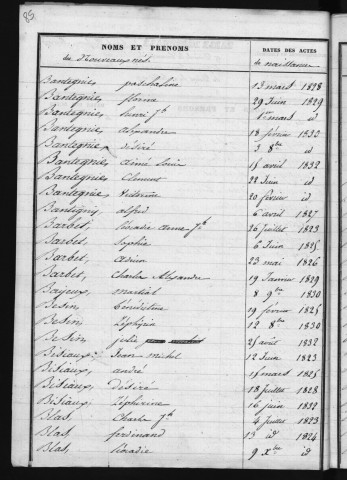 85.
NOMS ET PRENOMS DATES DES ACTES
des Nouveaux nés. de naissance
Bantegnies paschaline 13 mars 1828
Bantegnies florine 29 Juin 1829
Bantegnies henri Jh 1er mars id
Bantegnies alexandre 18 février 1830
Bantegnies désiré 3 8bre id
Bantegnies aimé Louis 15 avril 1832
Bantegnies Clément 22 Juin id
Bantegnies Victorine 20 février id
Bantigny alfred 6 avril 1827
Barbet, anne Jh 26 Juillet 1823
Barbet, Sophie 6 Juin 1825
Barbet, Adrien 23 mai 1826
Barbet, Charles Alexandre 19 Janvier 1829
Bajeux, martial 8 9bre 1830
Besin, bénédictine 19 février 1825
Besin Zéphirin 12 8bre 1830
Besin, julie 25 avril 1832
Bisiaux, Jean michel 12 Juin 1823
Bisiaux, andré 15 mars 1825
Bisiaux, Désiré 18 Juillet 1828
Bisiaux, Zéphirine 16 juin 1832
Blas, Charles Jh 4 Juillet 1823
Blas, ferdinand 13 id 1824
Blas, 9 Xbre id